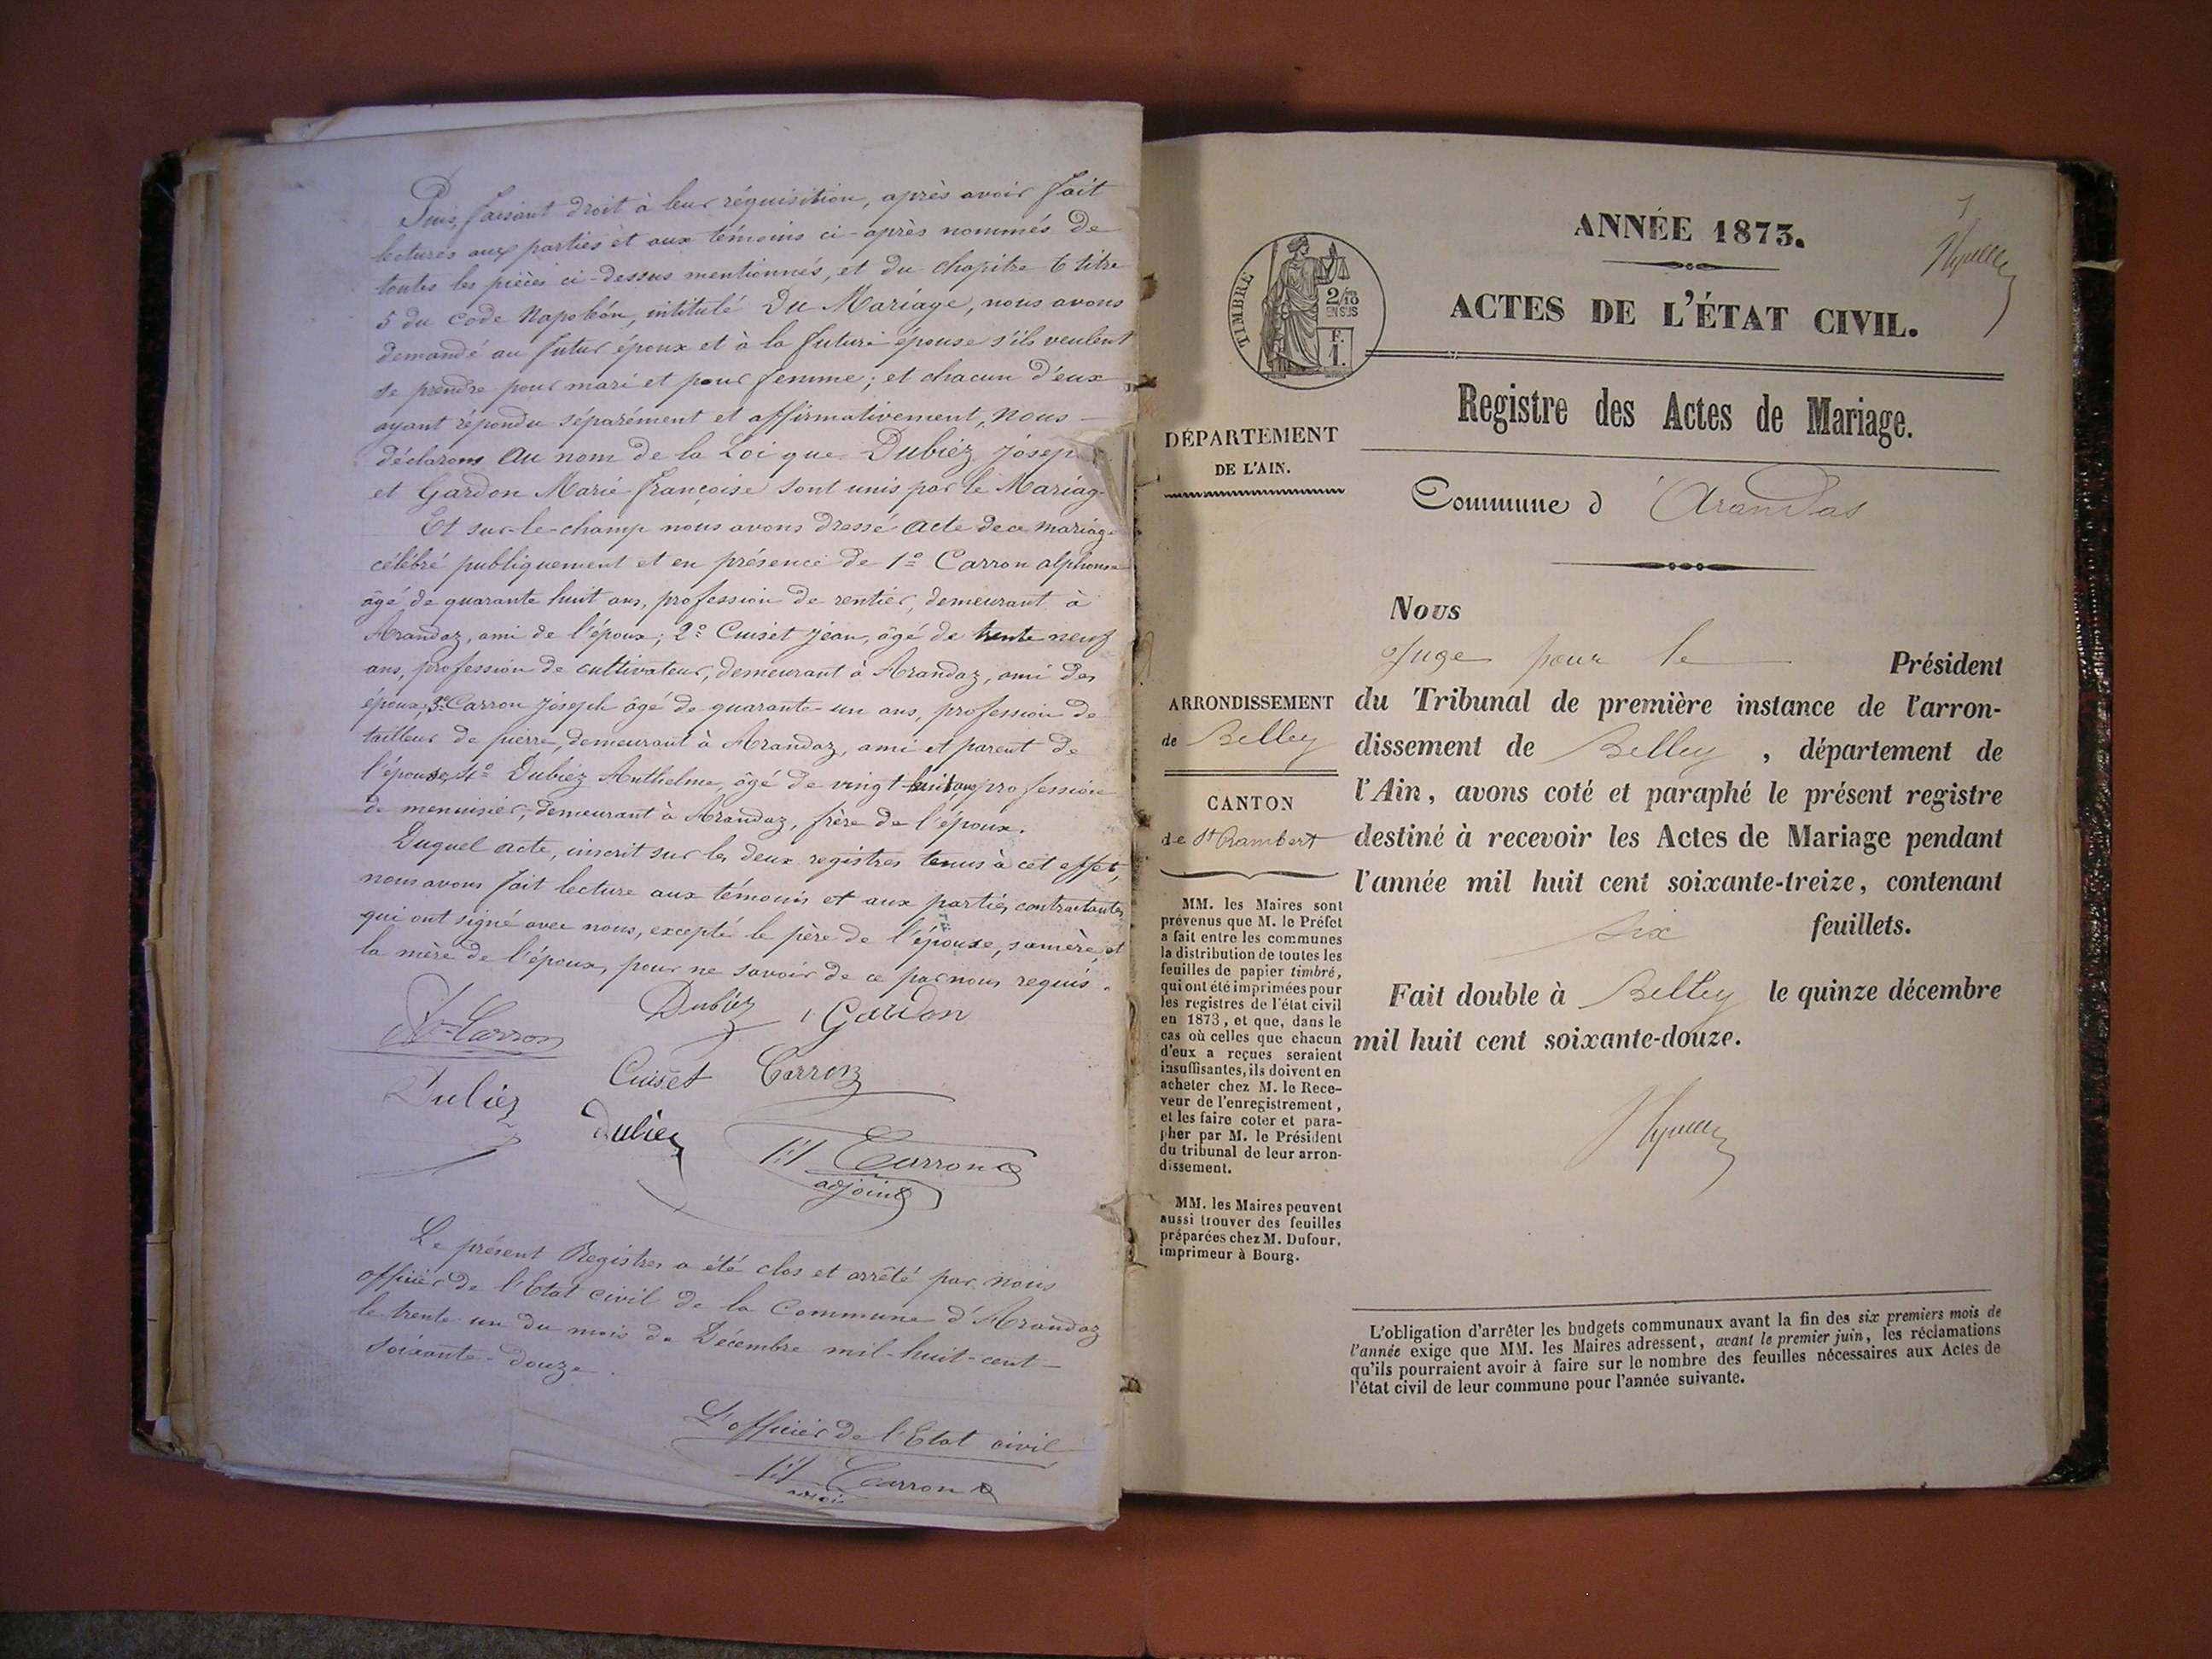 Puis, faisant droit à leur réquisition, après avoir fait
lectures aux parties et aux témoins ci-après nommés de
toutes les pièces ci-dessus mentionnés, et du chapitre 6 titre
5 du Code Napoléon, intitulé Du Mariage, nous avons
demandé au futur époux et à la future épouse s'ils veulent
se prendre pour mari et pour femme; et chacun d'eux
ayant répondu séparément et affirmativement, Nous
déclarons au nom de la Loi que Dubiez Josep
et Gardon Marie françoise sont unis par le Mariag
Et sur-le-champ nous avons dressé acte de ce mariag
célébré publiquement et en présence de 1º Carron alphonse
âgé de quarante huit ans, profession de rentier, demeurant à
Arandaz, ami de l'époux; 2º Cuiset Jean, âgé de trente neuf
ans, profession de cultivateur, demeurant à Arandaz, ami des
époux; 3º Carron Joseph âgé de quarante-un ans, profession de
tailleur de pierre, demeurant à Arandaz, ami et parent de
l'épouse, 4º Dubiez Anthelme, âgé de vingt-huit ans profession
de menuisier, demeurant à Arandaz, frère de l'époux.
Duquel acte, inscrit sur les deux registres tenus à cet effet,
nous avons fait lecture aux témoins et aux parties contractantes
qui ont signé avec nous, excepté le père de l'épouse, sa mère, et
la mère de l'époux, pour ne savoir de ce par nous requis.
Dubiez Gardon
Carron
Cuiset Carron
Dubiez
Dubiez
Carron
adjoint
Le présent Registre a été clos et arrêté par nous
officier de l'Etat civil de la Commune d'Arandaz
le trente-un du mois de Décembre mil-huit-cent
soixante-douze.
L'officier de l'Etat civil
Carron
ANNÉE 1873.
1
TIMBRE
2/10
EN SUS
F.
1.
ACTES DE L'ÉTAT CIVIL.
Registre des Actes de Mariage.
DÉPARTEMENT
DE L'AIN.
Commune d'Arandas
Nous
Juge pour le Président
du Tribunal de première instance de l'arron-
dissement de Belley, département de
l'Ain, avons coté et paraphé le présent registre
destiné à recevoir les Actes de Mariage pendant
l'année mil huit cent soixante-treize, contenant
six feuillets.
Fait double à Belley le quinze décembre
mil huit cent soixante-douze.
ARRONDISSEMENT
de Belley
CANTON
de St Rambert
MM. les Maires sont
prévenus que M. le Préfet
a fait entre les communes
la distribution de toutes les
feuilles de papier timbré,
qui ont été imprimées pour
les registres de l'état civil
en 1873, et que, dans le
cas où celles que chacun
d'eux a reçues seraient
insuffisantes, ils doivent en
acheter chez M. le Rece-
veur de l'enregistrement,
et les faire coter et para-
pher par M. le Président
du tribunal de leur arron-
dissement.
MM. les Maires peuvent
aussi trouver des feuilles
préparées chez M. Dufour,
imprimeur à Bourg.
L'obligation d'arrêter les budgets communaux avant la fin des six premiers mois de
l'année exige que MM. les Maires adressent, avant le premier juin, les réclamations
qu'ils pourraient avoir à faire sur le nombre des feuilles nécessaires aux Actes de
l'état civil de leur commune pour l'année suivante.